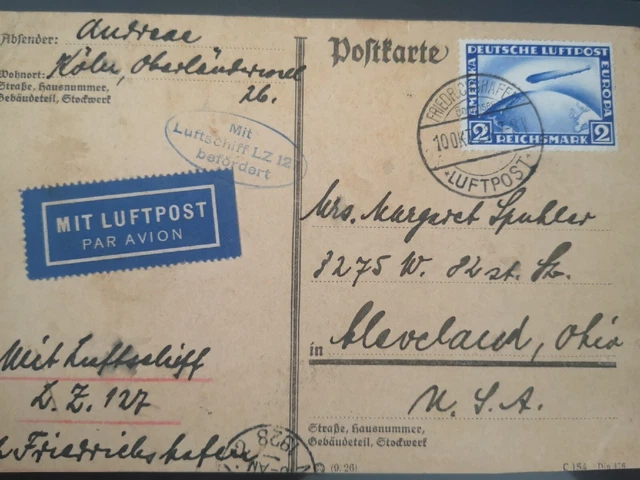 Absender: Andreae
Wohnort: Köln, Oberländerwall
Straße, Hausnummer, 26.
Gebäudeteil, Stockwerk
Mit
Luftschiff LZ 127
befördert
MIT LUFTPOST
PAR AVION
Mit Luftschiff
L.Z. 127
Friedrichshafen
1928
Postkarte
DEUTSCHE LUFTPOST
AMERIKA
EUROPA
2 REICHSMARK 2
FRIEDRICHSHAFEN
10 OKT
LUFTPOST
Mrs. Margaret Spuhler
3275 W. 82st. St.
in Cleveland, Ohio
U.S.A.
Straße, Hausnummer,
Gebäudeteil, Stockwerk
(9.26)
C 154